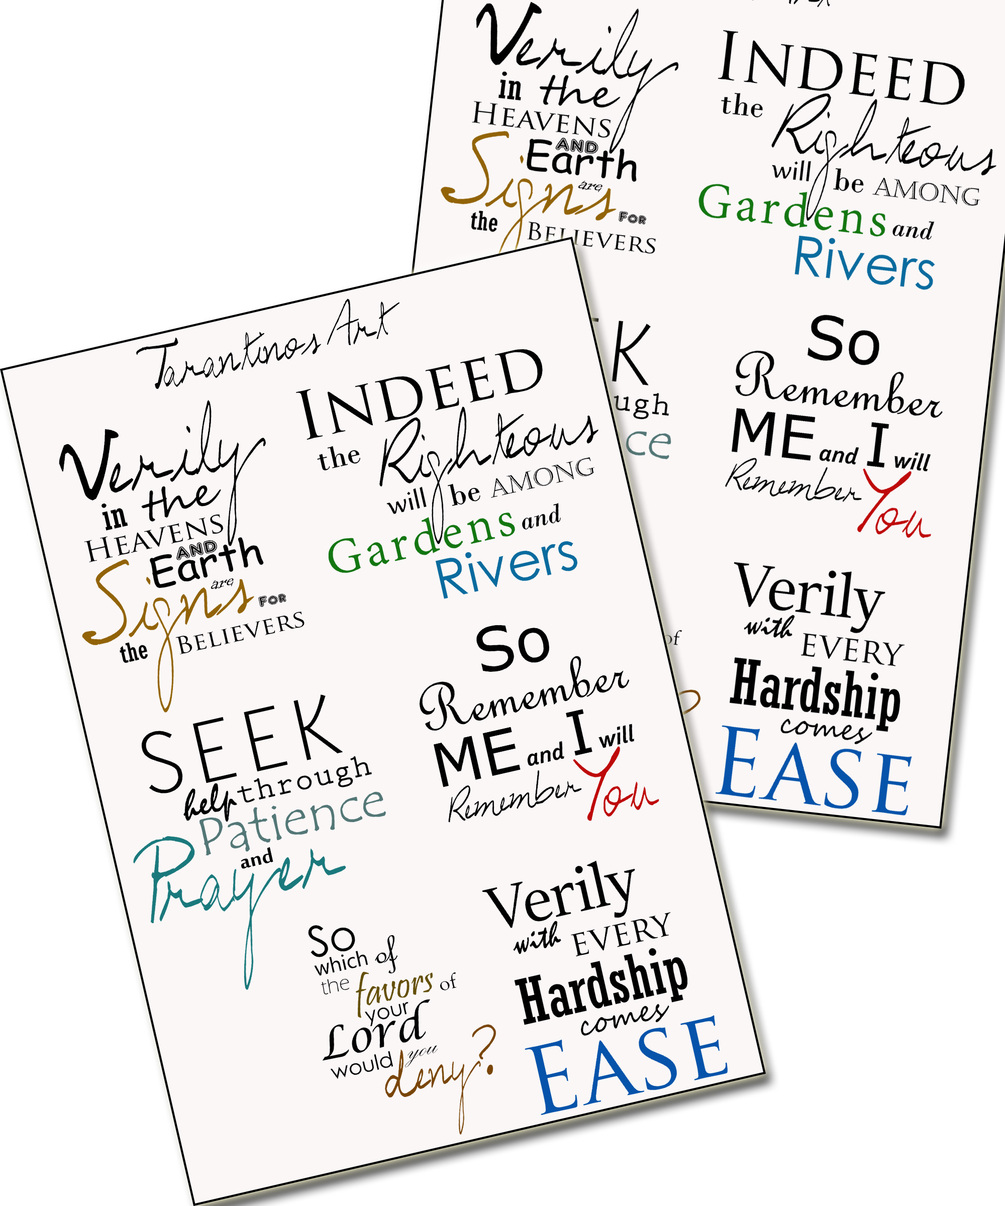 Verily
in the
HEAVENS
AND
Earth
Signs are FOR
the BELIEVERS
INDEED
the Righteous
will be AMONG
Gardens and
Rivers
K
ugh
ce
So
Remember
ME and I will
Remember You
of
Verily
with EVERY
Hardship
comes
EASE
Tarantinos Art
Verily
in the
HEAVENS
AND
Earth
Signs are FOR
the BELIEVERS
INDEED
the Righteous
will be AMONG
Gardens and
Rivers
SEEK
help through
Patience
and
Prayer
So
Remember
ME and I will
Remember You
So
which of
the favors of
your
Lord
would you
deny?
Verily
with EVERY
Hardship
comes
EASE